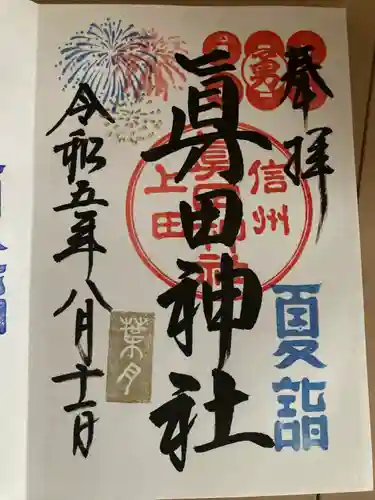 奉拝
勇
夏詣
眞田神社
信州
上田
眞田神社
葉月
令和五年八月十一日